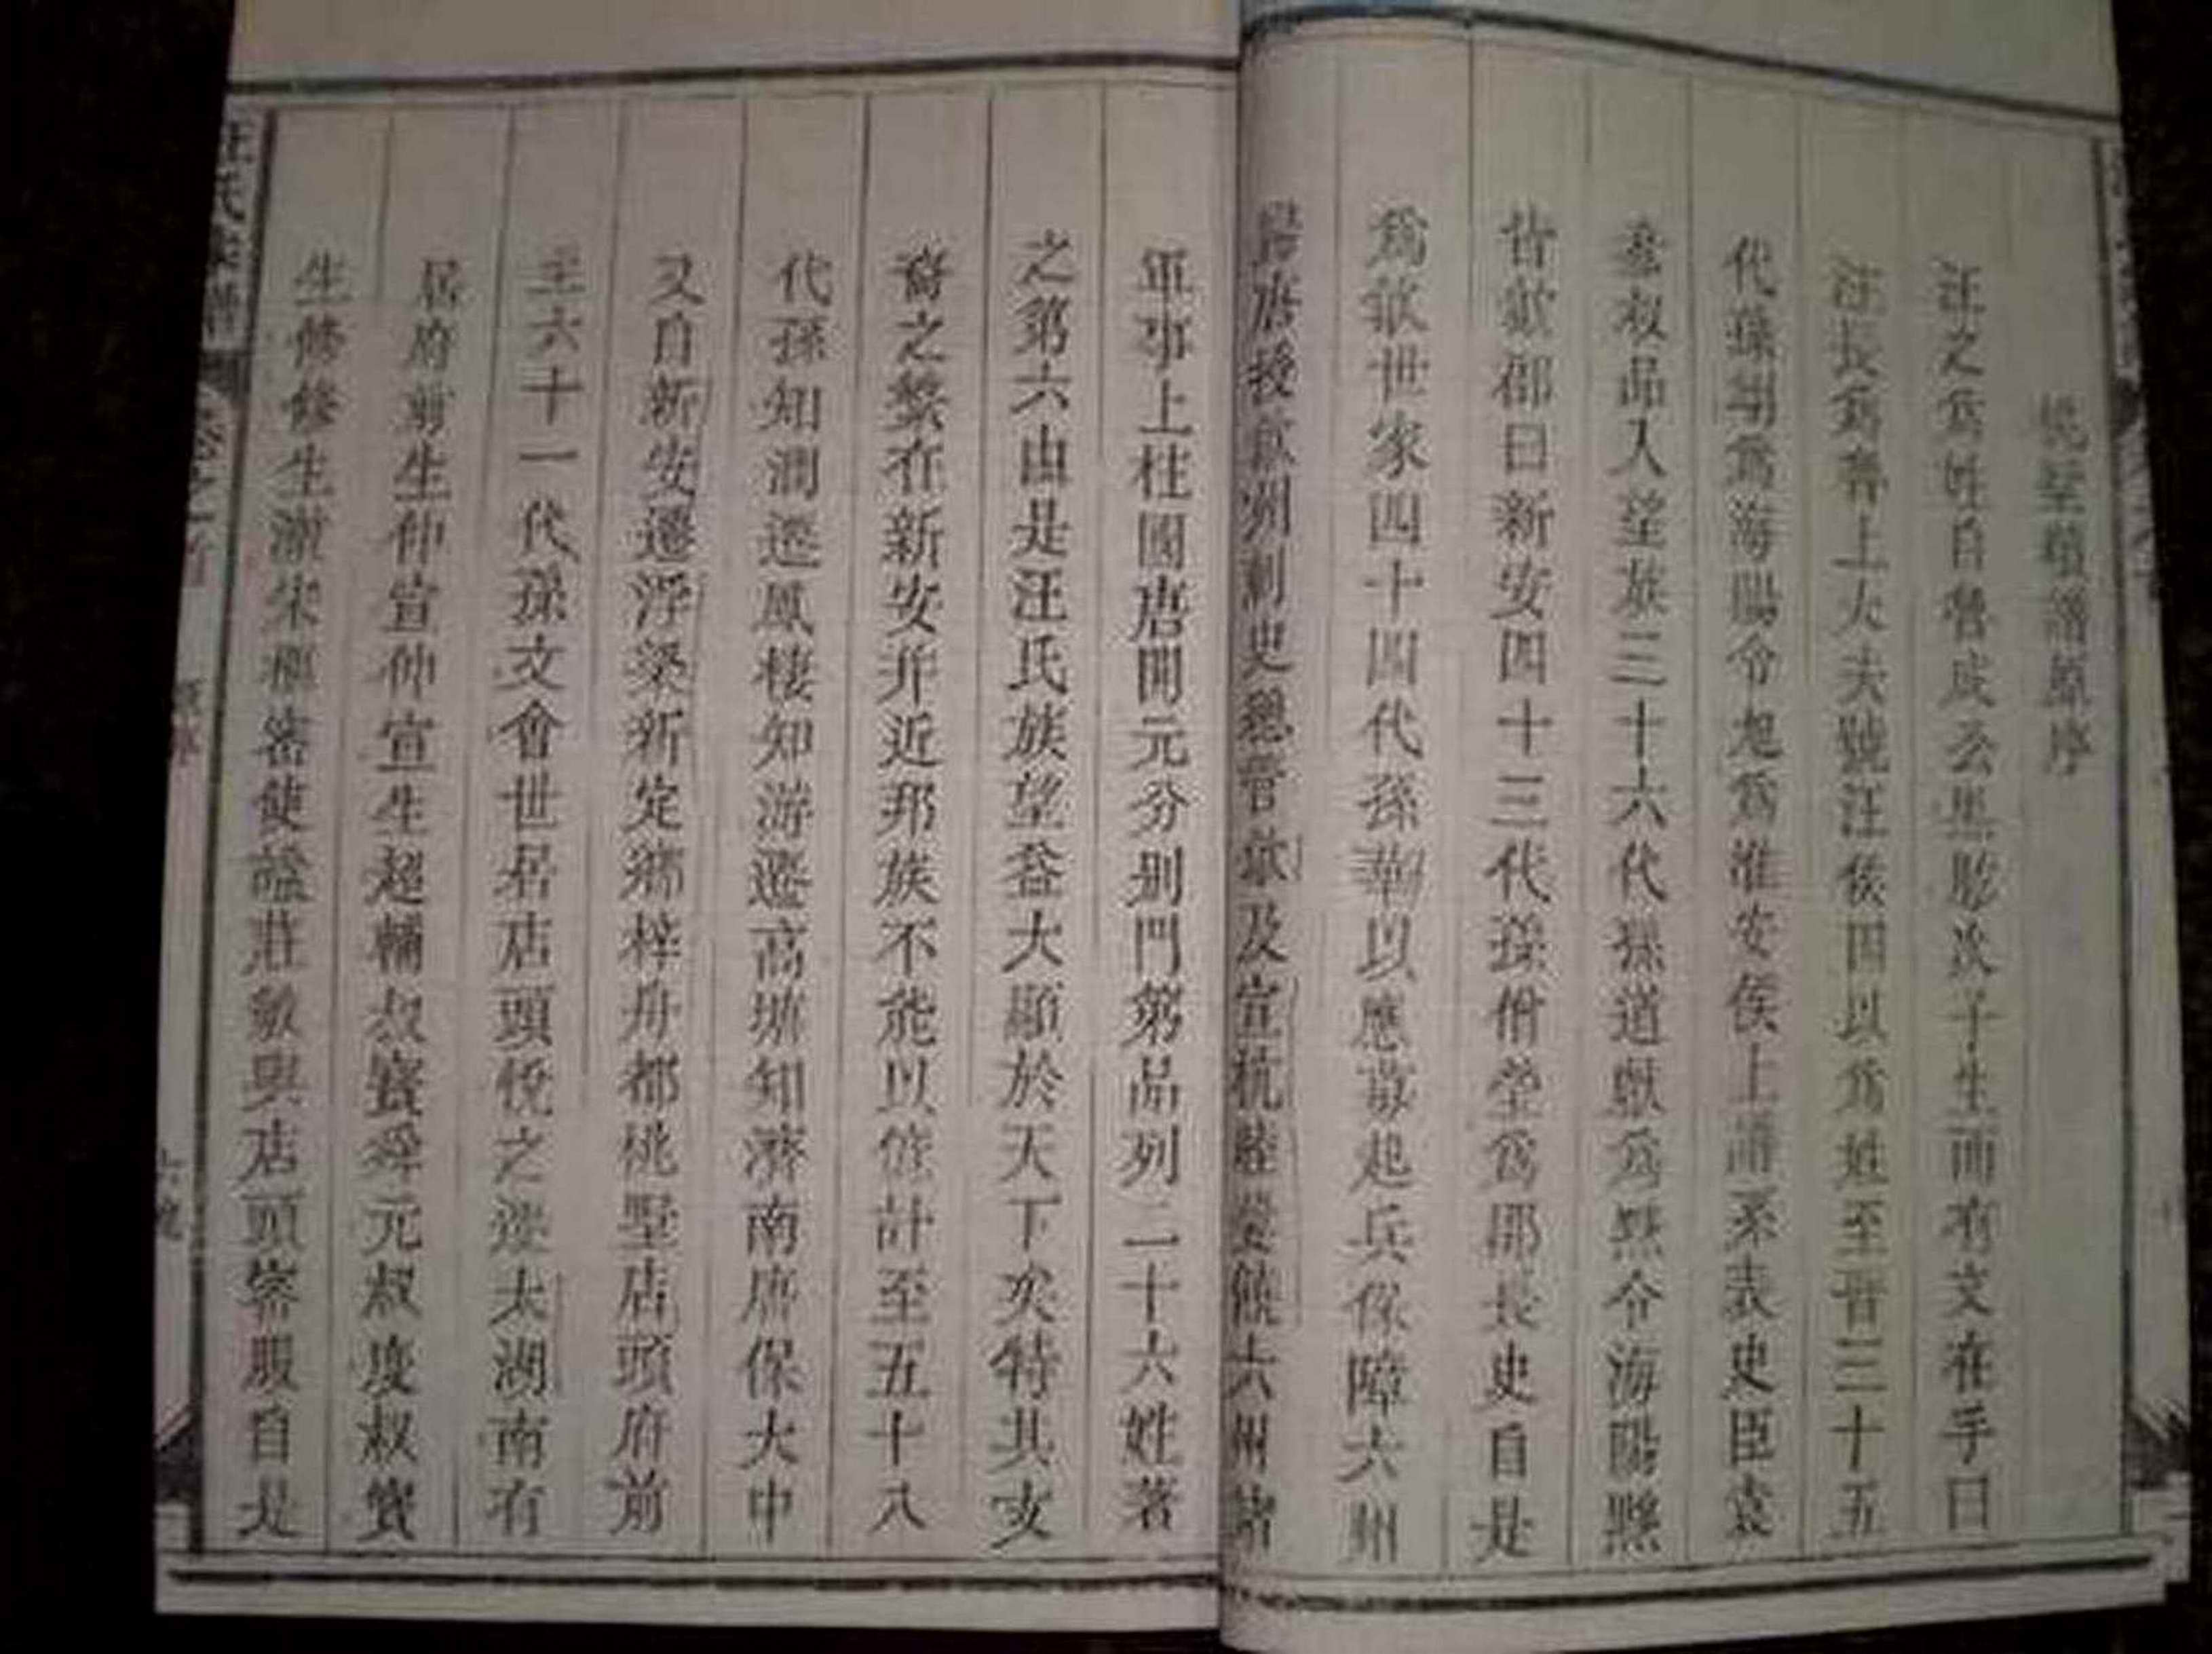 續譜原序
汪之爲姓自魯成公黑肱次子生而有文在手曰
汪長爲魯上大夫號汪侯因以爲姓至晉三十五
代孫為海陽令旭爲淮安侯上譜系表史臣袁
叔品入望族三十六代孫道獻爲黟令海陽黟
皆歙郡曰新安四十三代孫僧瑩爲郡長史自是
爲歙世家四十四代孫華以應募起兵保障六州
歸唐授歙州刺史總管歙及宣杭睦婺饒六州諸
軍事上柱國唐開元分別門第品列二十六姓著
之第六由是汪氏族望益大顯於天下矣特其支
裔之繁在新安并近邦族不能以偹計至五十八
代孫知潤遷鳳棲知游遷高塘知濟南唐保大中
又自新安遷浮梁新定鄉梓舟都桃墅店頭府前
至六十一代孫文會世居店頭悅之遷太湖南有
居府前生仲宣仲宣生超輔叔賓舜元叔度叔寶
生修修生澈宋樞密使諡莊敏與店頭密邇自是